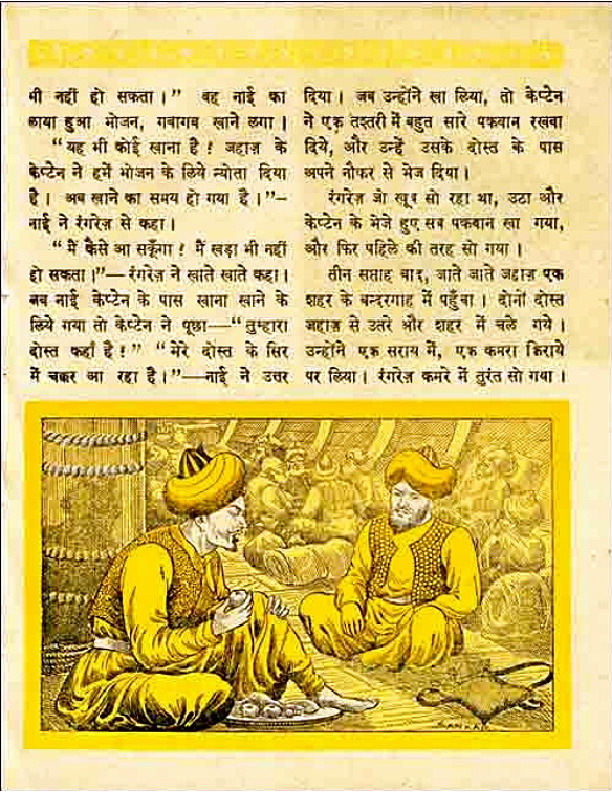 भी नहीं हो सकता।” वह नाई का
लाया हुआ भोजन, गबागब खाने लगा।
“यह भी कोई खाना है! जहाज़ के
केप्टेन ने हमें भोजन के लिये न्योता दिया
है। अब खाने का समय हो गया है।”–
नाई ने रंगरेज़ से कहा।
“मैं कैसे आ सकूँगा! मैं खड़ा भी नहीं
हो सकता।”—रंगरेज़ ने खाते खाते कहा।
जब नाई केप्टेन के पास खाना खाने के
लिये गया तो केप्टेन ने पूछा—“तुम्हारा
दोस्त कहाँ है!” “मेरे दोस्त के सिर
में चक्कर आ रहा है।”—नाई ने उत्तर
दिया। जब उन्होंने खा लिया, तो केप्टेन
ने एक तश्तरी में बहुत सारे पकवान रखवा
दिये, और उन्हें उसके दोस्त के पास
अपने नौकर से भेज दिया।
रंगरेज़ जो खूब सो रहा था, उठा और
केप्टेन के भेजे हुए सब पकवान खा गया,
और फिर पहिले की तरह सो गया।
तीन सप्ताह बाद, जाते जाते जहाज़ एक
शहर के बन्दरगाह में पहुँचा। दोनों दोस्त
जहाज़ से उतरे और शहर में चले गये।
उन्होंने एक सराय में, एक कमरा किराये
पर लिया। रंगरेज़ कमरे में तुरंत सो गया।
SANKAR